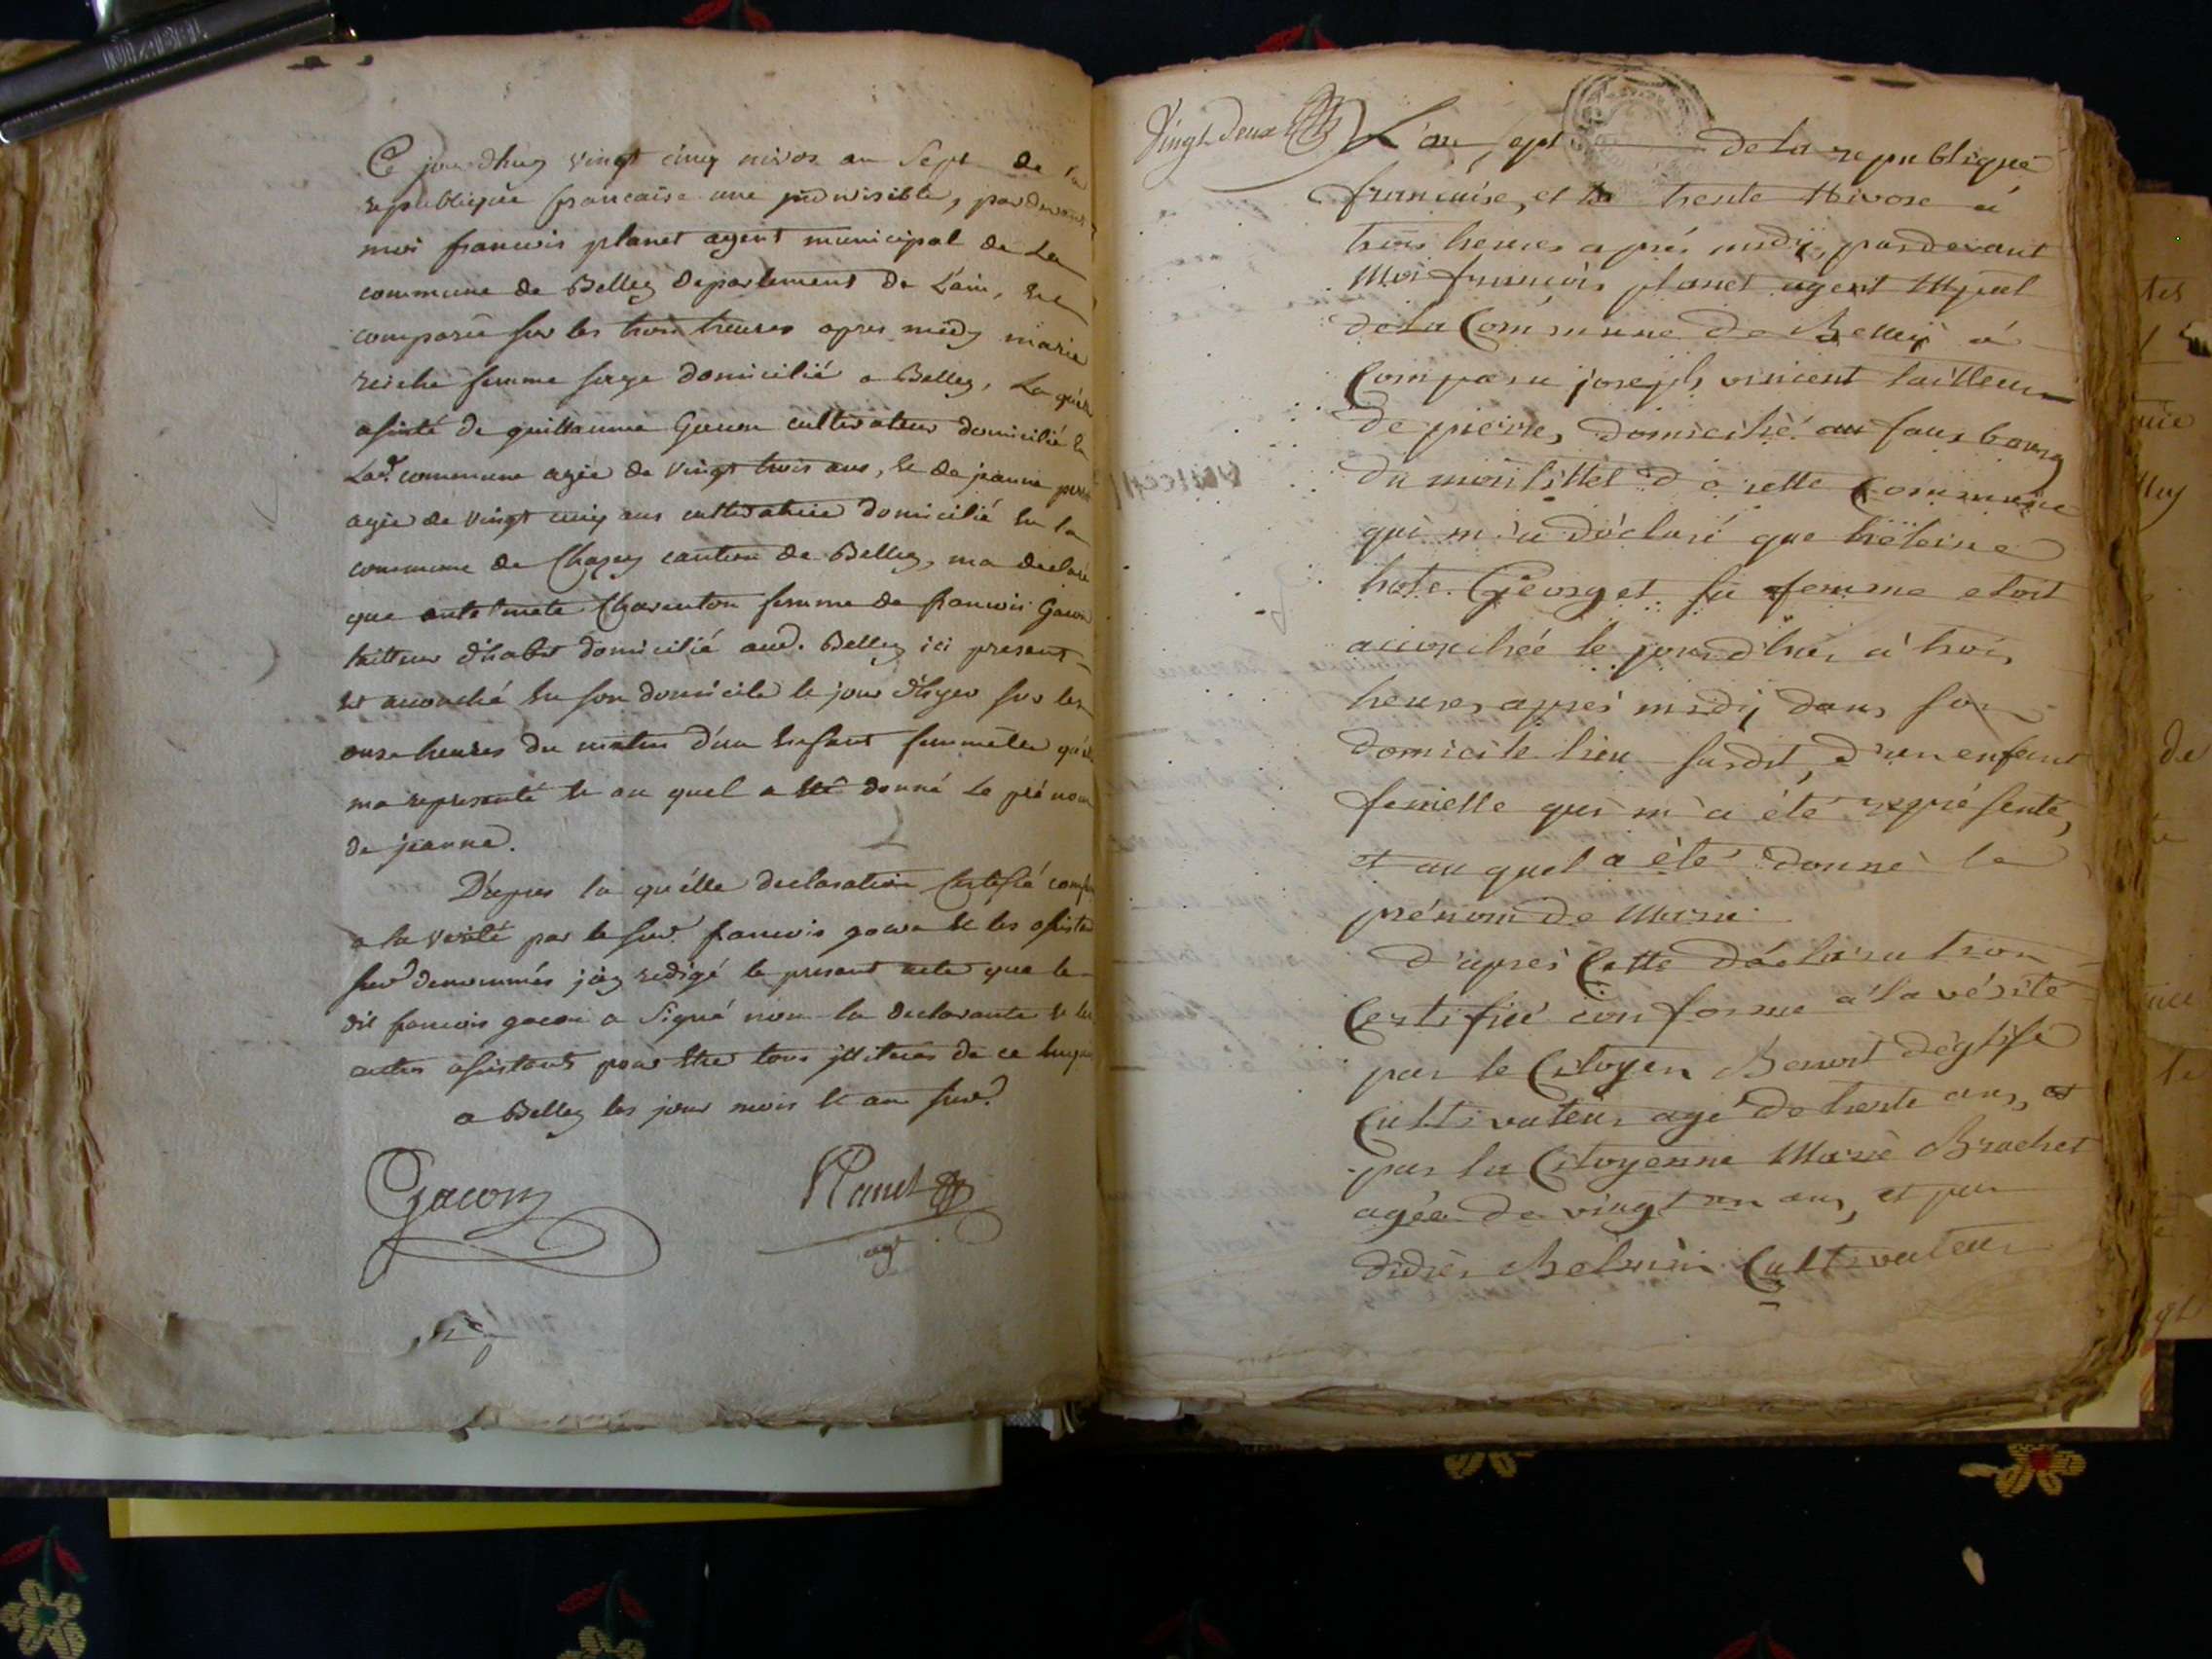 Ce jourdhuy vingt cinq nivos an Sept de la
republique francaise une jndivisible, pardevant
moi francois planet agent municipal de La
commune de Belley departement de L'ain, est
comparue sur les trois heures apres midy marie
femme sage domicilié a Belley, La quelle
asisté de guillaume Gacon cultivateur domicilié en
Lad. commune agée de vingt trois ans, et de jeanne
agée de vingt cinq ans cultivatrice domicilié en la
commune de Chazey canton de Belley, ma declaré
que Charenton femme de francois Gacon
tailleur d'habit domicilié aud. Belley ici present
est accouché en son domicile le jour d'hyer sur les
onze heures du matin d'un enfant fummelle qu'elle
ma representé et au quel a été donné Le prénom
de jeanne.
D'apres la qu'elle declaration Certifié conforme
a la verité par le sud. francois gacon et les asistants
sud denommés j'ay redigé le present acte que le
dit francois gacon a Signé non la declarante et les
autres asistants pour être tous jlliterés de ce
a Belley les jour mois et an sud.
Gacon Planet
agt
Vingt Deux L'an Sept de la republique
francaise, et le trente Nivose à
trois heures après midy, pardevant
Moi françois planet agent Mpal
de la Commune de Belley à
Comparu joseph vincent tailleur
de pierre, domicilié au faux bourg
du de cette Commune
qui m'a déclaré que héleine
Georget sa femme etoit
accouchée le jourd'hui à trois
heures après midy dans son
domicile lieu susdit, d'un enfant
femelle qui m'a été représenté,
et au quel a été donné le
prénom de Marie
d'après Cette déclaration
Certifiée conforme à la vérité
par le Citoyen Benoit déglise
Cultivateur agé de trente ans, et
par la Citoyenne Marie Brachet
agée de vingt un ans, et par
didier Cultivateur